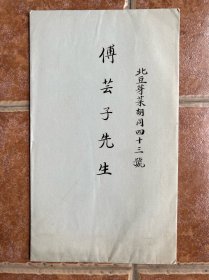 北豆芽菜胡同四十三號
傅芸子先生